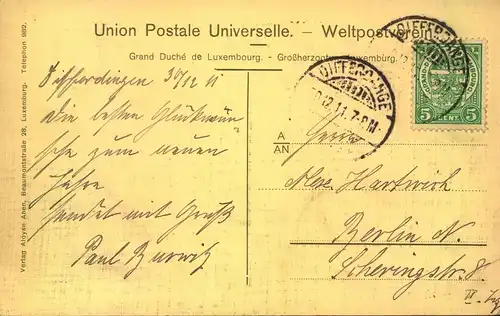 Union Postale Universelle. — Weltpostverein.
Grand Duché de Luxembourg. - Großherzogtum Luxemburg.
Verlag Aloyse Anen, Beaumontstraße 28, Luxemburg. Telephon 982.
DIFFERDANGE
DIFFERDANGE
30.12.11. 7-8M
5 CENT. 5
Differdingen 30/12 11
Die besten Glückwün-
sche zum neuen
Jahre
sendet mit Gruß
Paul Burwitz
A
AN
Herrn
Alex Hartwich
Berlin N.
Scheringstr. 8.